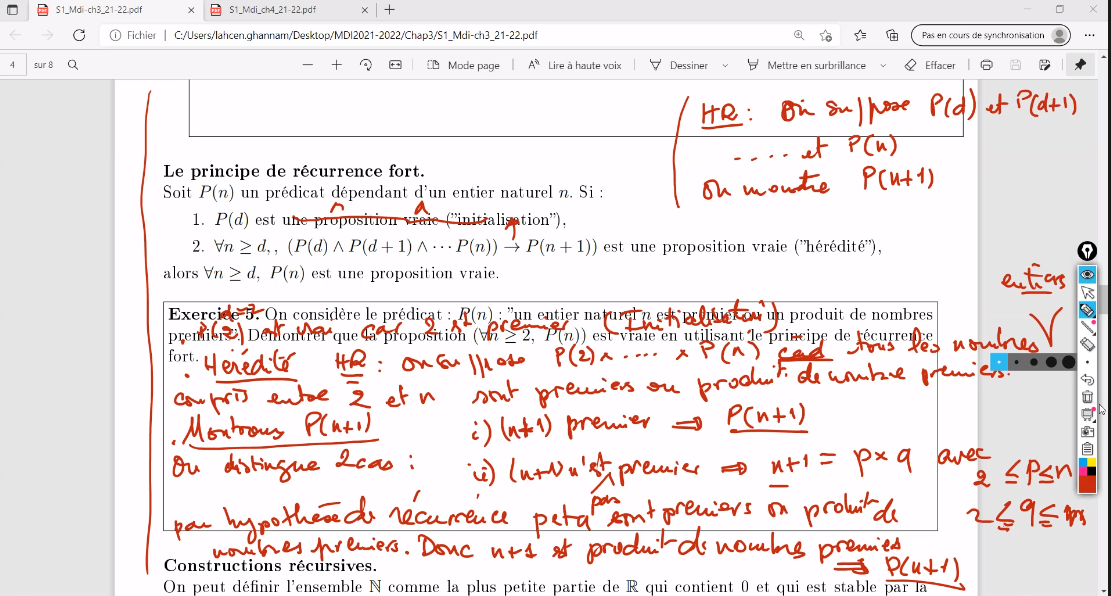 S1_Mdi-ch3_21-22.pdf
S1_Mdi_ch4_21-22.pdf
Fichier C:/Users/lahcen.ghannam/Desktop/MDI2021-2022/Chap3/S1_Mdi-ch3_21-22.pdf
Pas en cours de synchronisation
4 sur 8
Mode page
Lire à haute voix
Dessiner
Mettre en surbrillance
Effacer
HR : On suppose P(d) et P(d+1)
.... et P(n)
On montre P(n+1)
Le principe de récurrence fort.
Soit P(n) un prédicat dépendant d'un entier naturel n. Si :
1. P(d) est une proposition vraie ("initialisation"),
2. ∀n ≥ d,, (P(d) ∧ P(d + 1) ∧ ··· P(n)) → P(n + 1)) est une proposition vraie ("hérédité"),
alors ∀n ≥ d, P(n) est une proposition vraie.
entiers
Exercice 5. On considère le prédicat : P(n) : "un entier naturel n est premier ou un produit de nombres
premiers". Démontrer que la proposition (∀n ≥ 2, P(n)) est vraie en utilisant le principe de récurrence
fort.
P(2) est vrai car 2 est premier (Initialisation)
. Hérédité HR : on suppose P(2) ∧ .... ∧ P(n) càd tous les nombres
compris entre 2 et n sont premiers ou produit de nombre premiers.
. Montrons P(n+1) i) (n+1) premier ⇒ P(n+1)
On distingue 2 cas : ii) (n+1) n'est pas premier ⇒ n+1 = p×q avec
2 ≤ p ≤ n
2 ≤ q ≤ n
par hypothèse de récurrence p et q sont premiers ou produit de
nombres premiers. Donc n+1 est produit de nombres premiers
⇒ P(n+1)
Constructions récursives.
On peut définir l'ensemble ℕ comme la plus petite partie de ℝ qui contient 0 et qui est stable par la